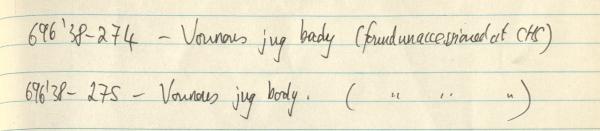 696'38-274 - Vounous jug body (found unaccessioned at CHS)
696'38-275 - Vounous jug body. ( " " " )